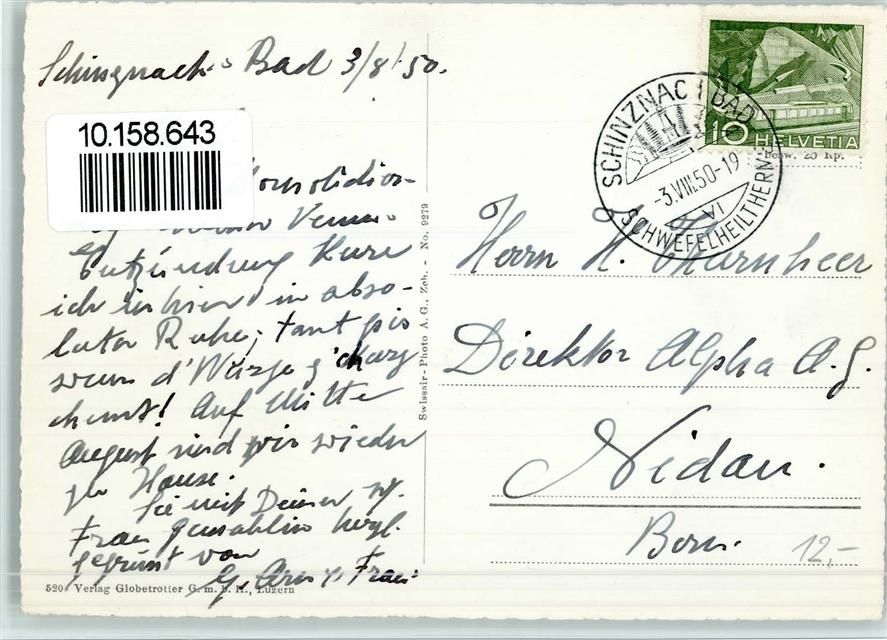 Schinznach-Bad 3/8/50.
10.158.643
Konsolidier-
Venen-
entzündung Kure
ich hier in abso-
luter Ruhe; tant pis
wenn d'Würze z'churz
chunt! Auf Mitte
August sind wir wieder
zu Hause.
Sei mit Deiner
Frau Gemahlin herzl.
gegrüsst von
G. Arn & Frau
520 Verlag Globetrotter G. m. b. H., Luzern
Swissair-Photo A. G., Zch. - No. 9279
HELVETIA
10
SCHINZNACH BAD
-3.VIII.50-19
VI
SCHWEFELHEILTHERME
Bew. 25 Rp.
Herrn H. Marnheer
Direktor Alpha A.G.
Nidau.
Bern.
12,-